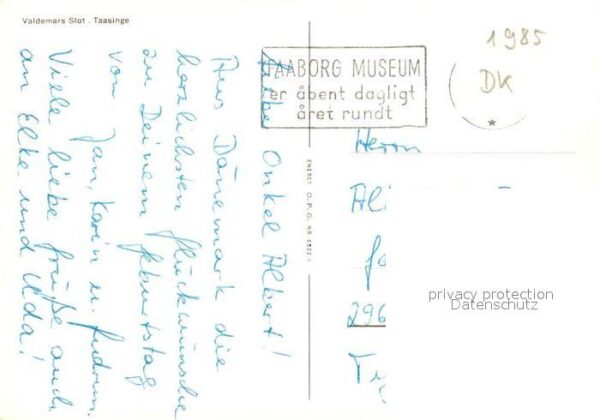 Valdemars Slot . Taasinge
Lieber Onkel Albert!
Aus Dänemark die
herzlichsten Glückwünsche
zu Deinem Geburtstag
von Jan, Karin u. Gudrun.
Viele liebe Grüße auch
an Elke und Uda!
FAABORG MUSEUM
er åbent dagligt
året rundt
1985
DK
ENERET
Herrn
296
privacy protection
Datenschutz